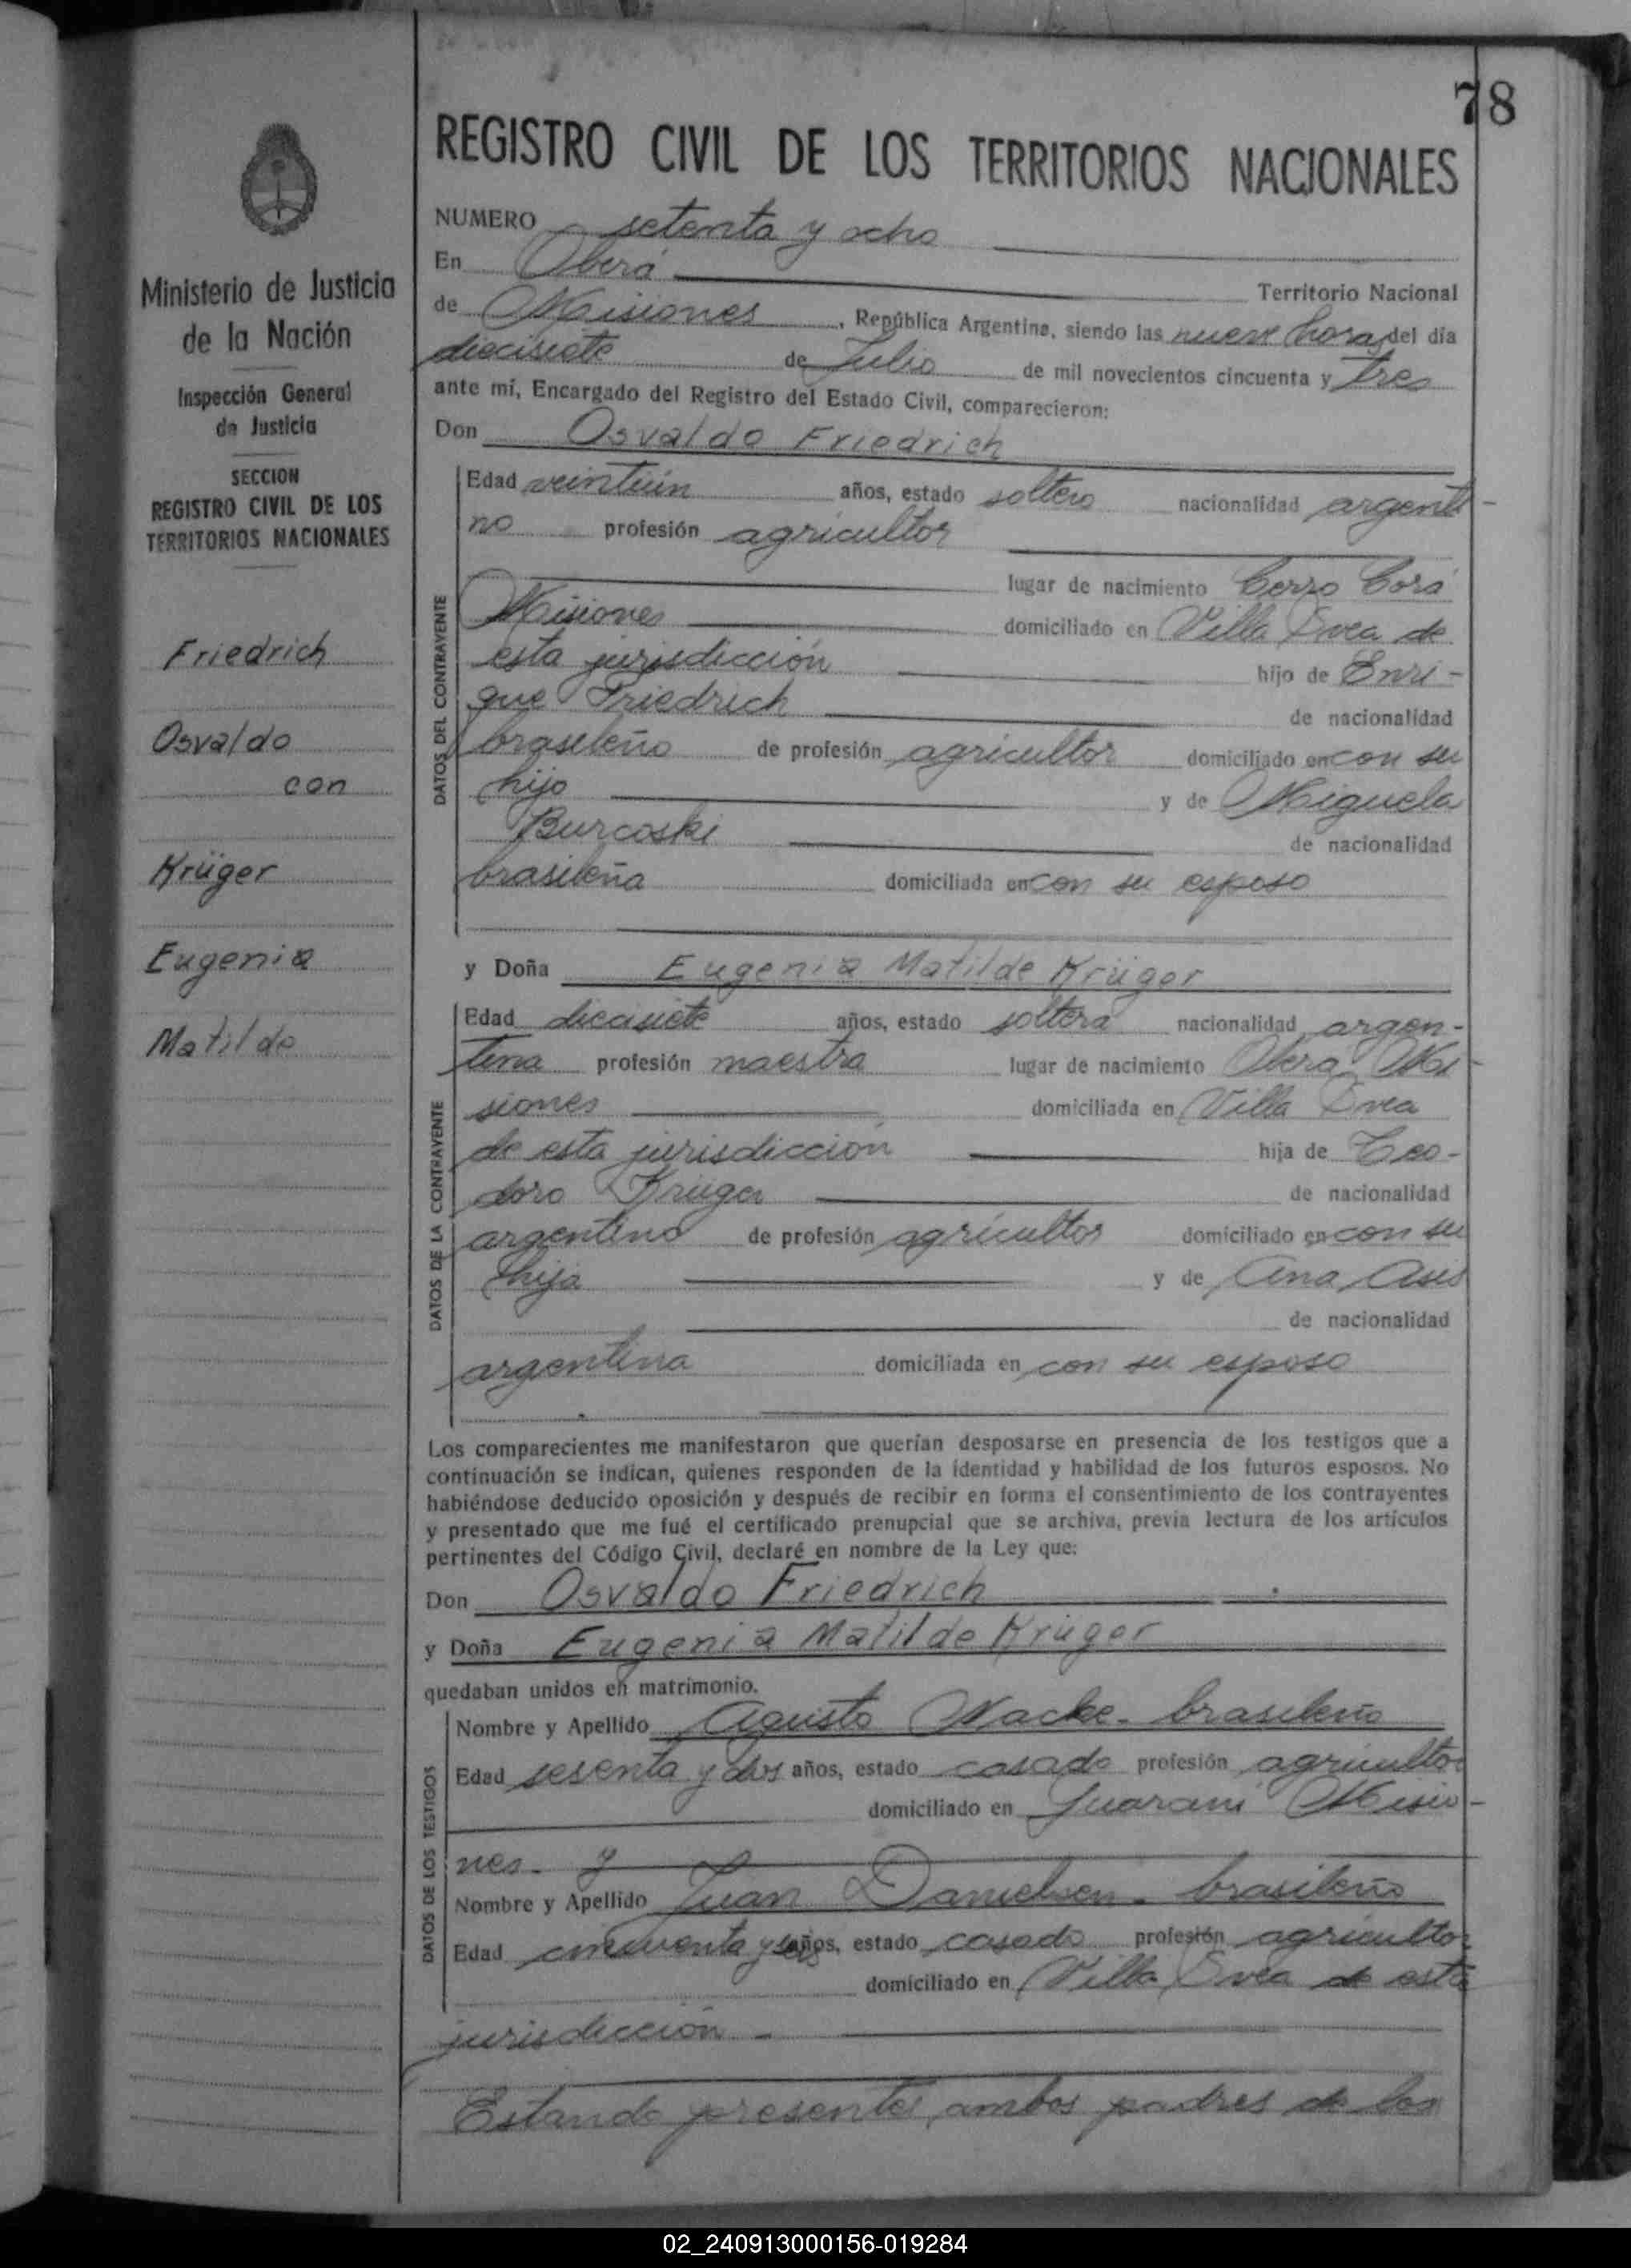 78
REGISTRO CIVIL DE LOS TERRITORIOS NACIONALES
Ministerio de Justicia
de la Nación
Inspección General
de Justicia
SECCION
REGISTRO CIVIL DE LOS
TERRITORIOS NACIONALES
Friedrich
Osvaldo
con
Krüger
Eugenia
Matilde
NUMERO setenta y ocho
En Oberá Territorio Nacional
de Misiones, República Argentina, siendo las nueve horas del día
diecisiete de Julio de mil novecientos cincuenta y tres
ante mí, Encargado del Registro del Estado Civil, comparecieron:
Don Osvaldo Friedrich
DATOS DEL CONTRAYENTE
Edad veintiún años, estado soltero nacionalidad argenti-
no profesión agricultor
lugar de nacimiento Cerro Corá
Misiones domiciliado en Villa Svea de
esta jurisdicción hijo de Enri-
que Friedrich de nacionalidad
brasileño de profesión agricultor domiciliado en con su
hijo y de Miguela
Burcoski de nacionalidad
brasileña domiciliada en con su esposo
y Doña Eugenia Matilde Krüger
DATOS DE LA CONTRAYENTE
Edad diecisiete años, estado soltera nacionalidad argen-
tina profesión maestra lugar de nacimiento Oberá Mi-
siones domiciliada en Villa Svea
de esta jurisdicción hija de Teo-
doro Krüger de nacionalidad
argentino de profesión agricultor domiciliado en con su
hija y de Ana Asis
de nacionalidad
argentina domiciliada en con su esposo
Los comparecientes me manifestaron que querían desposarse en presencia de los testigos que a
continuación se indican, quienes responden de la identidad y habilidad de los futuros esposos. No
habiéndose deducido oposición y después de recibir en forma el consentimiento de los contrayentes
y presentado que me fué el certificado prenupcial que se archiva, previa lectura de los artículos
pertinentes del Código Civil, declaré en nombre de la Ley que:
Don Osvaldo Friedrich
y Doña Eugenia Matilde Krüger
quedaban unidos en matrimonio.
DATOS DE LOS TESTIGOS
Nombre y Apellido Agusto Nacke - brasileño
Edad sesenta y dos años, estado casado profesión agricultor
domiciliado en Guaraní Misio-
nes - y
Nombre y Apellido Juan Danielsen - brasileño
Edad cincuenta y seis años, estado casado profesión agricultor
domiciliado en Villa Svea de esta
jurisdicción -
Estando presentes ambos padres de los
02_240913000156-019284